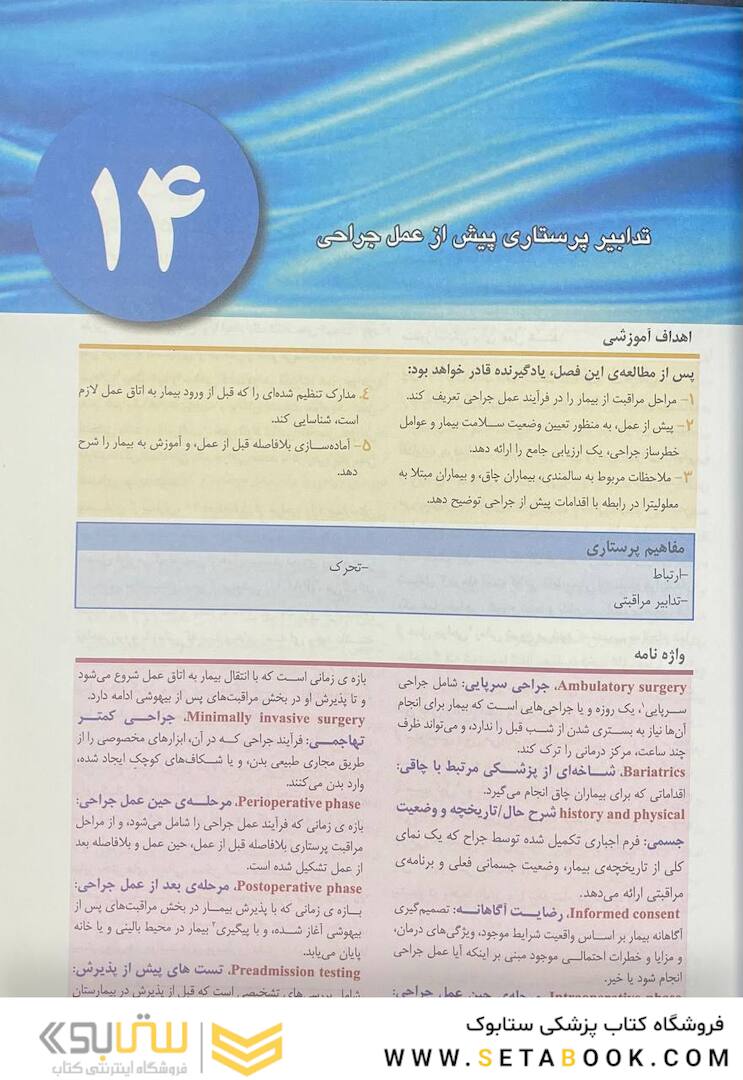 ۱۴
تدابیر پرستاری پیش از عمل جراحی
اهداف آموزشی
پس از مطالعه‌ی این فصل، یادگیرنده قادر خواهد بود:
۱- مراحل مراقبت از بیمار را در فرآیند عمل جراحی تعریف کند.
۲- پیش از عمل، به منظور تعیین وضعیت سلامت بیمار و عوامل
خطرساز جراحی، یک ارزیابی جامع را ارائه دهد.
۳- ملاحظات مربوط به سالمندی، بیماران چاق، و بیماران مبتلا به
معلولیترا در رابطه با اقدامات پیش از جراحی توضیح دهد.
۴. مدارک تنظیم شده‌ای را که قبل از ورود بیمار به اتاق عمل لازم
است، شناسایی کند.
۵- آماده‌سازی بلافاصله قبل از عمل، و آموزش به بیمار را شرح
دهد.
مفاهیم پرستاری
-ارتباط
-تدابیر مراقبتی
-تحرک
واژه نامه
Ambulatory surgery، جراحی سرپایی: شامل جراحی
سرپایی۱، یک روزه و یا جراحی‌هایی است که بیمار برای انجام
آن‌ها نیاز به بستری شدن از شب قبل را ندارد، و می‌تواند ظرف
چند ساعت، مرکز درمانی را ترک کند.
Bariatrics، شاخه‌ای از پزشکی مرتبط با چاقی:
اقداماتی که برای بیماران چاق انجام می‌گیرد.
history and physical شرح حال/تاریخچه و وضعیت
جسمی: فرم اجباری تکمیل شده توسط جراح که یک نمای
کلی از تاریخچه‌ی بیمار، وضعیت جسمانی فعلی و برنامه‌ی
مراقبتی ارائه می‌دهد.
Informed consent، رضایت آگاهانه: تصمیم‌گیری
آگاهانه بیمار بر اساس واقعیت شرایط موجود، ویژگی‌های درمان،
و مزایا و خطرات احتمالی موجود مبنی بر اینکه آیا عمل جراحی
انجام شود یا خیر.
Intraoperative phase، مرحله‌ی حین عمل جراحی:
بازه ی زمانی است که با انتقال بیمار به اتاق عمل شروع می‌شود
و تا پذیرش او در بخش مراقبت‌های پس از بیهوشی ادامه دارد.
Minimally invasive surgery، جراحی کمتر
تهاجمی: فرآیند جراحی که در آن، ابزارهای مخصوصی را از
طریق مجاری طبیعی بدن، و یا شکاف‌های کوچک ایجاد شده،
وارد بدن می‌کنند.
Perioperative phase، مرحله‌ی حین عمل جراحی:
بازه ی زمانی که فرآیند عمل جراحی را شامل می‌شود، و از مراحل
مراقبت پرستاری بلافاصله قبل از عمل، حین عمل و بلافاصله بعد
از عمل تشکیل شده است.
Postoperative phase، مرحله‌ی بعد از عمل جراحی:
بازه ی زمانی که با پذیرش بیمار در بخش مراقبت‌های پس از
بیهوشی آغاز شده، و با پیگیری۲ بیمار در محیط بالینی و یا خانه
پایان می‌یابد.
Preadmission testing، تست های پیش از پذیرش:
شامل بررسی‌های تشخیصی است که قبل از پذیرش در بیمارستان
فروشگاه کتاب پزشکی ستابوک
WWW.SETABOOK.COM
ستابوک
فروشگاه اینترنتی کتاب